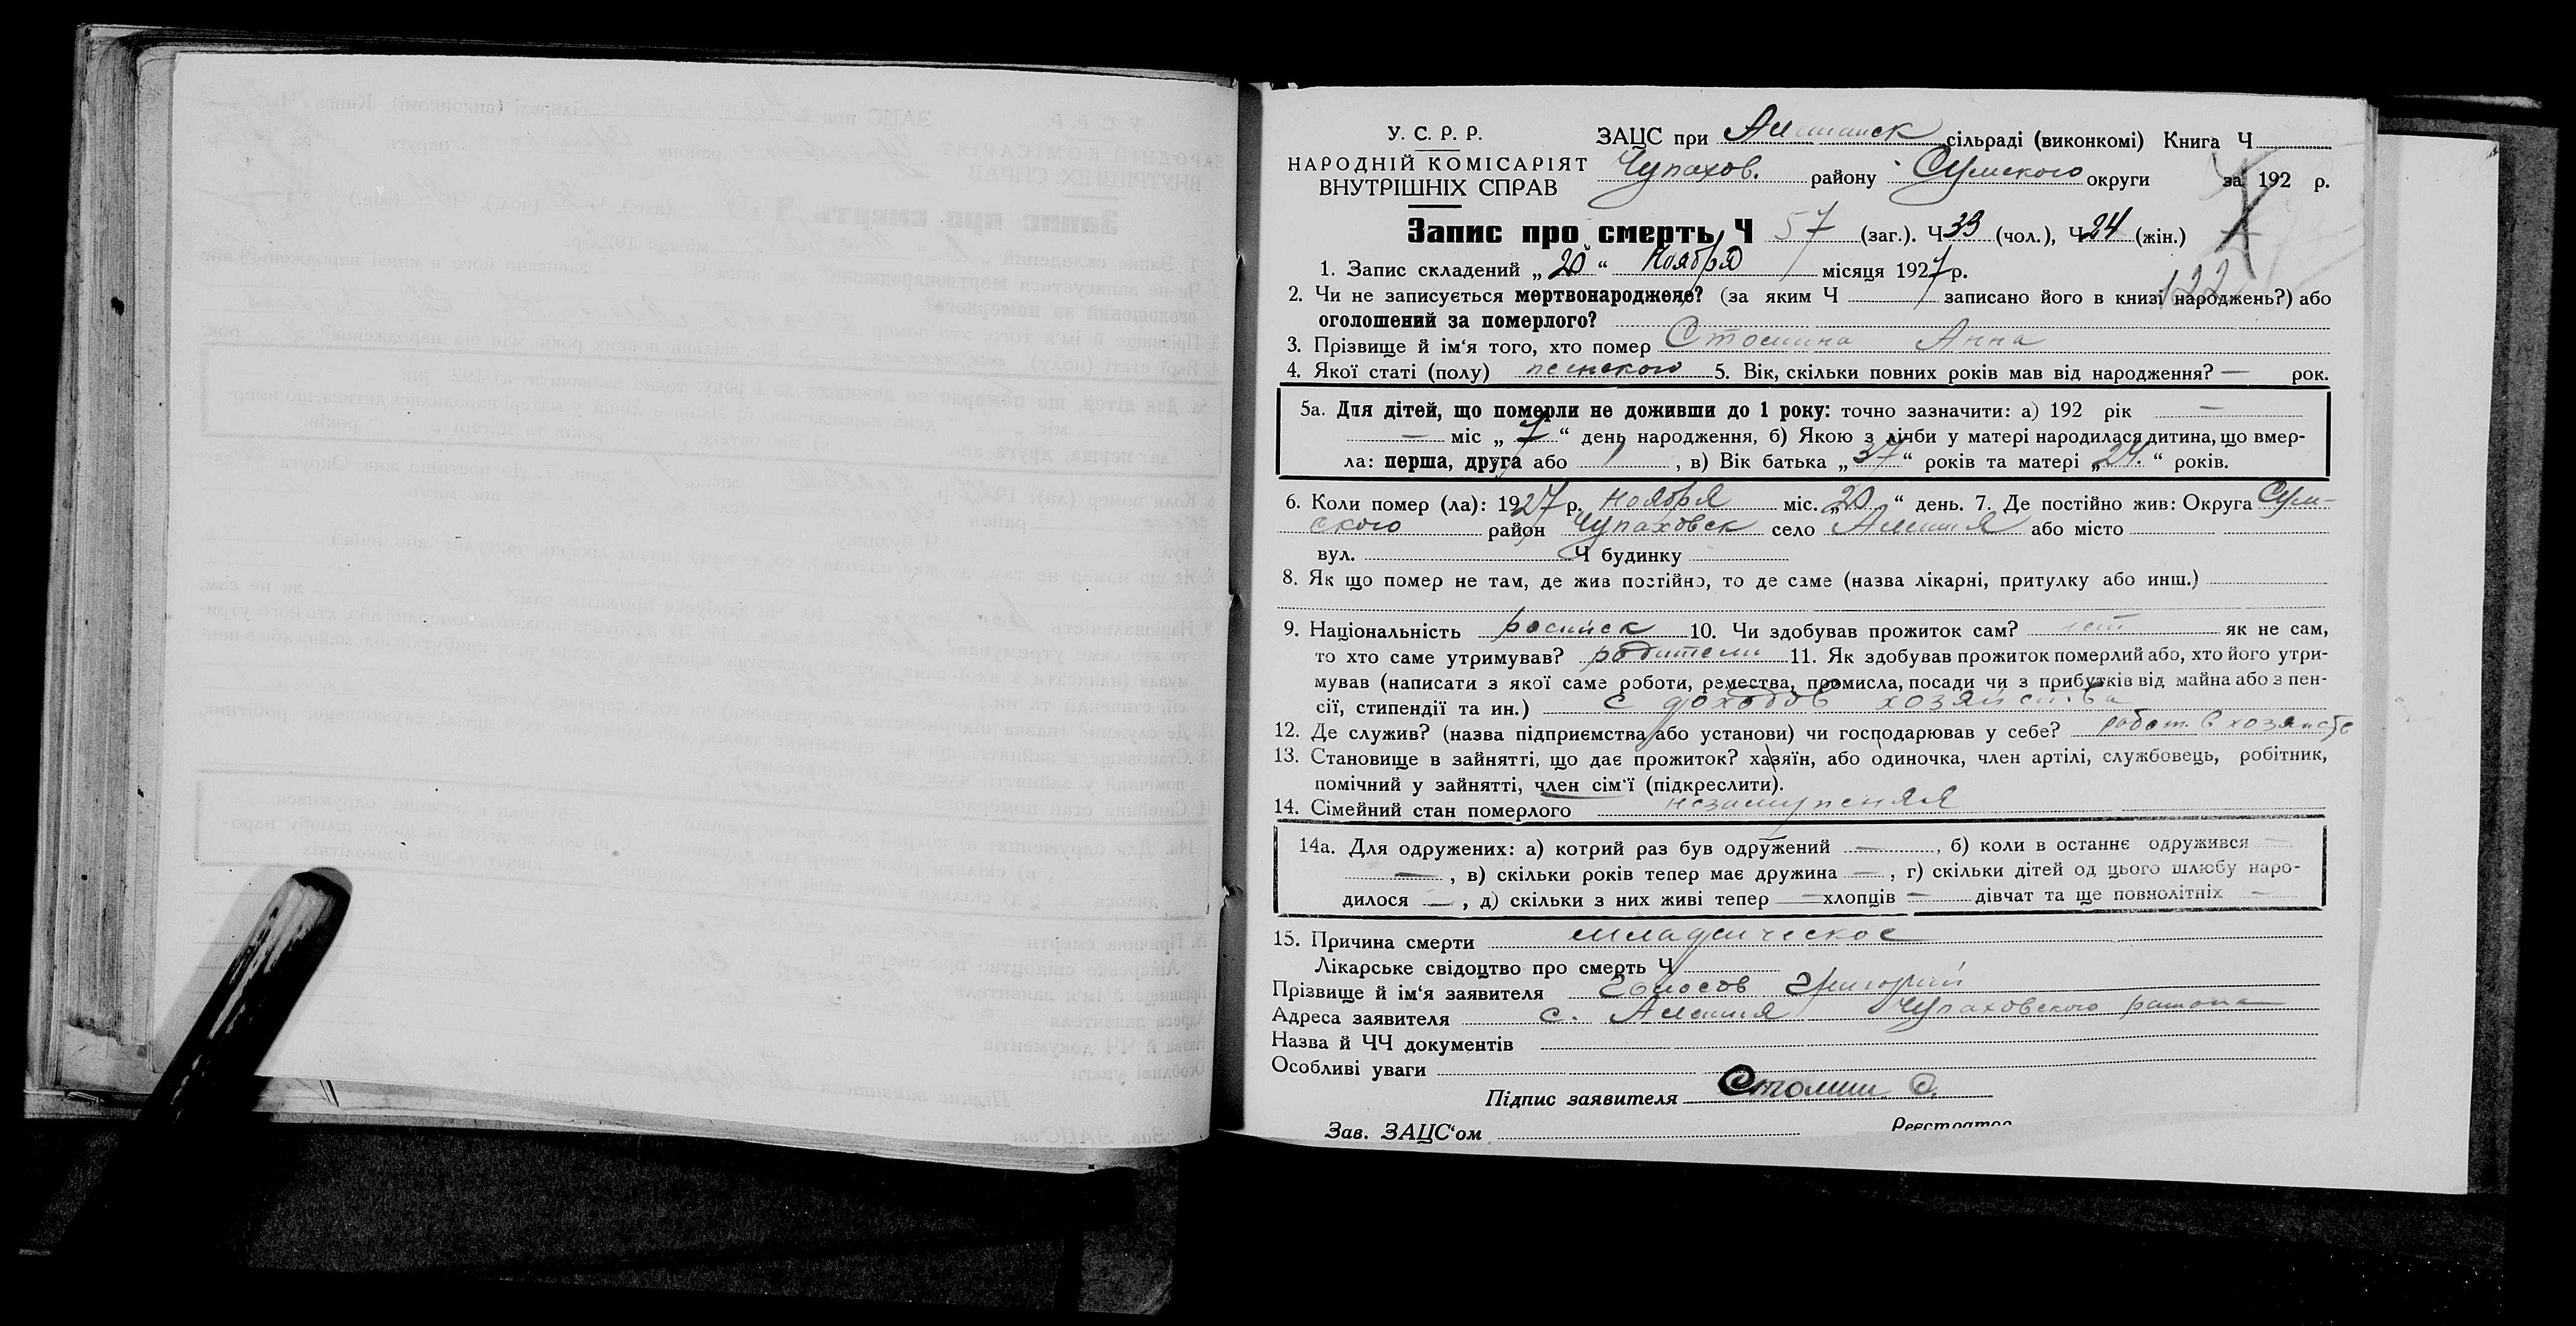 У. С. Р. Р.
НАРОДНІЙ КОМІСАРІЯТ
ВНУТРІШНІХ СПРАВ
ЗАЦС при сільраді (виконкомі) Книга Ч
Чупахов. району Сумского округи за 192 р.
Запис про смерть Ч 57 (заг.). Ч 33 (чол.), Ч 24 (жін.)
122
1. Запис складений „20“ Ноября місяця 1927 р.
2. Чи не записується мертвонароджене? (за яким Ч записано його в книзі народжень?) або
оголошений за померлого?
3. Прізвище й ім‘я того, хто помер Анна
4. Якої статі (полу) 5. Вік, скільки повних років мав від народження? — рок.
5а. Для дітей, що померли не доживши до 1 року: точно зазначити: а) 192 рік —
— міс „7“ день народження, б) Якою з лічби у матері народилася дитина, що вмер-
ла: перша, друга або 1, в) Вік батька „37“ років та матері „24.“ років.
6. Коли помер (ла): 1927 р. Ноября міс. „20“ день. 7. Де постійно жив: Округа Сум-
ского район Чупаховск село або місто
вул. Ч будинку
8. Як що помер не там, де жив постійно, то де саме (назва лікарні, притулку або инш.)
9. Національність російск 10. Чи здобував прожиток сам? нет як не сам,
то хто саме утримував? родители 11. Як здобував прожиток померлий або, хто його утри-
мував (написати з якої саме роботи, ремества, промисла, посади чи з прибутків від майна або з пен-
сії, стипендії та ин.) с доходов хозяйства
12. Де служив? (назва підприємства або установи) чи господарював у себе? работ. в хозяйстве
13. Становище в зайнятті, що дає прожиток? хазяїн, або одиночка, член артілі, службовець, робітник,
помічний у зайнятті, член сім‘ї (підкреслити).
14. Сімейний стан померлого
14а. Для одружених: а) котрий раз був одружений —, б) коли в останнє одружився —
—, в) скільки років тепер має дружина —, г) скільки дітей од цього шлюбу наро-
дилося —, д) скільки з них живі тепер — хлопців — дівчат та ще повнолітніх —
15. Причина смерти младическое
Лікарське свідоцтво про смерть Ч
Прізвище й ім‘я заявителя Григорий
Адреса заявителя с. Чупаховского района
Назва й ЧЧ документів
Особливі уваги
Підпис заявителя
Зав. ЗАЦС‘ом Реєстратор